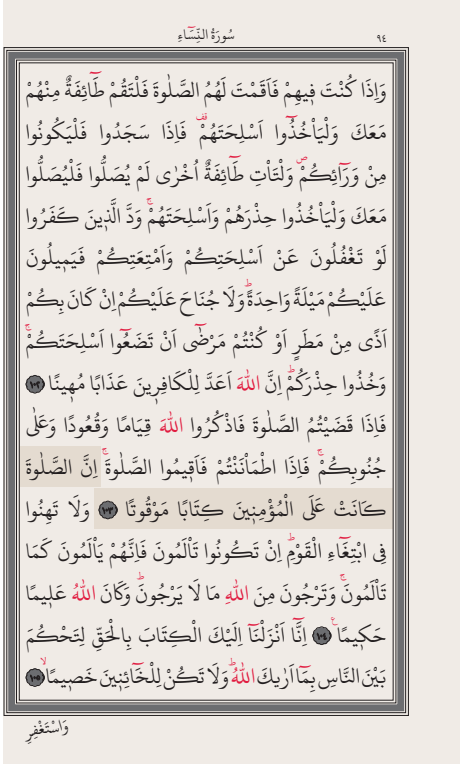 ٩٤ سُورَةُ النِّسَٓاءِ
وَاِذَا كُنْتَ فٖيهِمْ فَاَقَمْتَ لَهُمُ الصَّلٰوةَ فَلْتَقُمْ طَٓائِفَةٌ مِنْهُمْ
مَعَكَ وَلْيَأْخُذُٓوا اَسْلِحَتَهُمْ ۠ فَاِذَا سَجَدُوا فَلْيَكُونُوا
مِنْ وَرَٓائِكُمْۖ وَلْتَأْتِ طَٓائِفَةٌ اُخْرٰى لَمْ يُصَلُّوا فَلْيُصَلُّوا
مَعَكَ وَلْيَأْخُذُوا حِذْرَهُمْ وَاَسْلِحَتَهُمْۚ وَدَّ الَّذٖينَ كَفَرُوا
لَوْ تَغْفُلُونَ عَنْ اَسْلِحَتِكُمْ وَاَمْتِعَتِكُمْ فَيَمٖيلُونَ
عَلَيْكُمْ مَيْلَةً وَاحِدَةًۜ وَلَا جُنَاحَ عَلَيْكُمْ اِنْ كَانَ بِكُمْ
اَذًى مِنْ مَطَرٍ اَوْ كُنْتُمْ مَرْضٰٓى اَنْ تَضَعُٓوا اَسْلِحَتَكُمْۚ
وَخُذُوا حِذْرَكُمْۜ اِنَّ اللّٰهَ اَعَدَّ لِلْكَافِرٖينَ عَذَابًا مُهٖينًا ﴿١٠٢﴾
فَاِذَا قَضَيْتُمُ الصَّلٰوةَ فَاذْكُرُوا اللّٰهَ قِيَامًا وَقُعُودًا وَعَلٰى
جُنُوبِكُمْۚ فَاِذَا اطْمَأْنَنْتُمْ فَاَقٖيمُوا الصَّلٰوةَۚ اِنَّ الصَّلٰوةَ
كَانَتْ عَلَى الْمُؤْمِنٖينَ كِتَابًا مَوْقُوتًا ﴿١٠٣﴾ وَلَا تَهِنُوا
فِي ابْتِغَٓاءِ الْقَوْمِۜ اِنْ تَكُونُوا تَأْلَمُونَ فَاِنَّهُمْ يَأْلَمُونَ كَمَا
تَأْلَمُونَۚ وَتَرْجُونَ مِنَ اللّٰهِ مَا لَا يَرْجُونَۜ وَكَانَ اللّٰهُ عَلٖيمًا
حَكٖيمًاۚ ﴿١٠٤﴾ اِنَّٓا اَنْزَلْنَٓا اِلَيْكَ الْكِتَابَ بِالْحَقِّ لِتَحْكُمَ
بَيْنَ النَّاسِ بِمَٓا اَرٰيكَ اللّٰهُۜ وَلَا تَكُنْ لِلْخَٓائِنٖينَ خَصٖيمًاۙ ﴿١٠٥﴾
وَاسْتَغْفِرِ